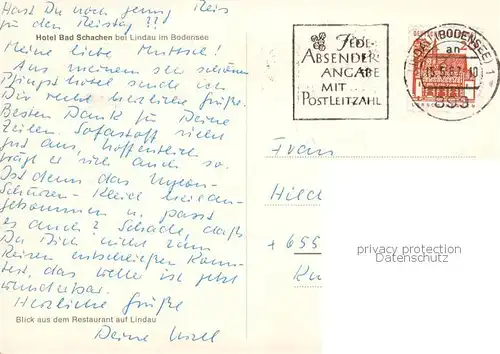 Hast Du noch genug Reis
für den Reistag ???
Hotel Bad Schachen bei Lindau im Bodensee
Meine liebe
Aus meinem sehr schönen
Pfingsthotel sende ich
Dir recht herzliche Grüße.
Besten Dank für Deine
Zeilen. Sofastoff sieht
gut aus, hoffentlich
trägt er sich auch so.
Ist denn das Nylon-
Schürzen-Kleid
gekommen u. passt
es auch? Schade, daß
Du Dich nicht zum
Reisen entschließen konn-
test, das Wetter ist jetzt
wunderbar.
Herzliche Grüße
Deine
Blick aus dem Restaurant auf Lindau
JEDE
ABSENDER
ANGABE
MIT
POSTLEITZAHL
(BODENSEE)
an
15.5.67.10
Frau
Hild
655
privacy protection
Datenschutz